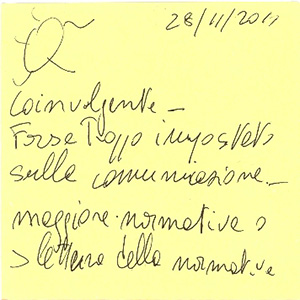 28/11/2011
Coinvolgente -
Forse Troppo impostato
sulla comunicazione -
maggiore normativa o
> lettura della normativa